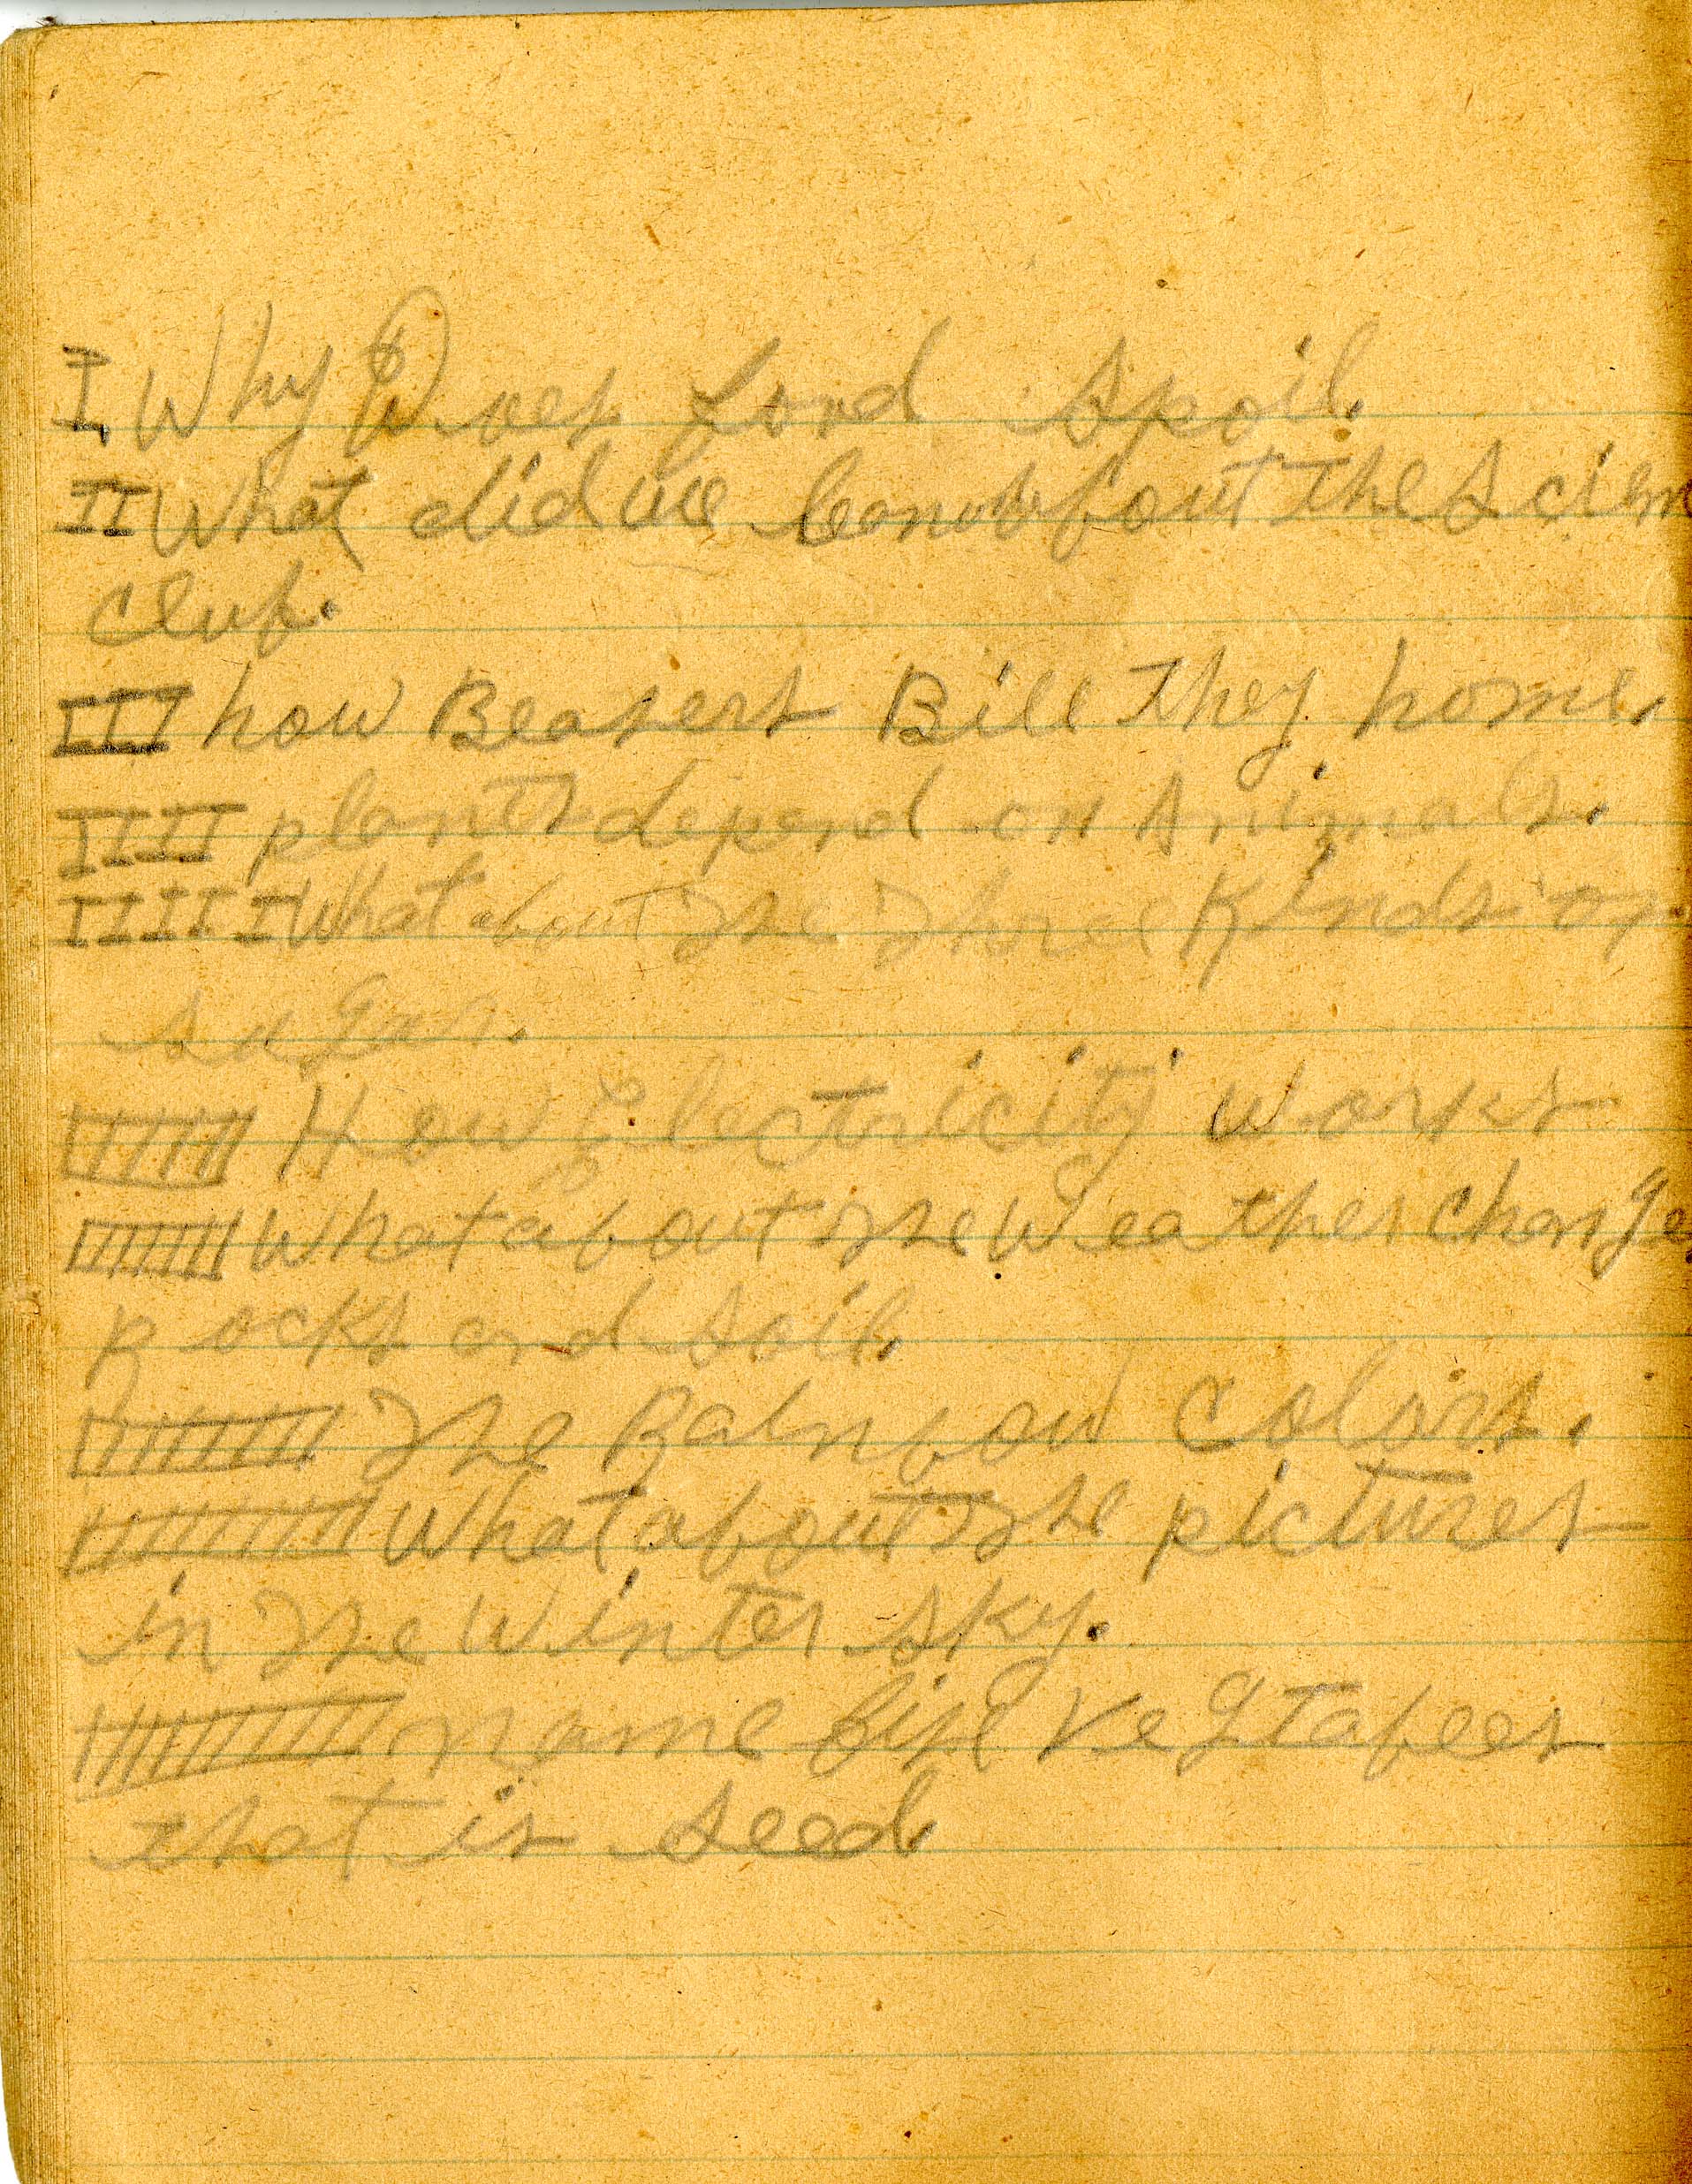 I. Why Does Food Spoil.
II What did we learn about the Scien
club.
III how Beavers Bill they home.
IIII plants depend on Animals.
IIIII What about The Three Kinds of
Sugar.
IIIIII How Electricity Works
IIIIIII What about The Weather change
Rocks and soil.
IIIIIIII The Rainbow Colors.
IIIIIIIII What about The pictures
in The Winter Sky.
IIIIIIIIII name five Vegtabees
that is seed